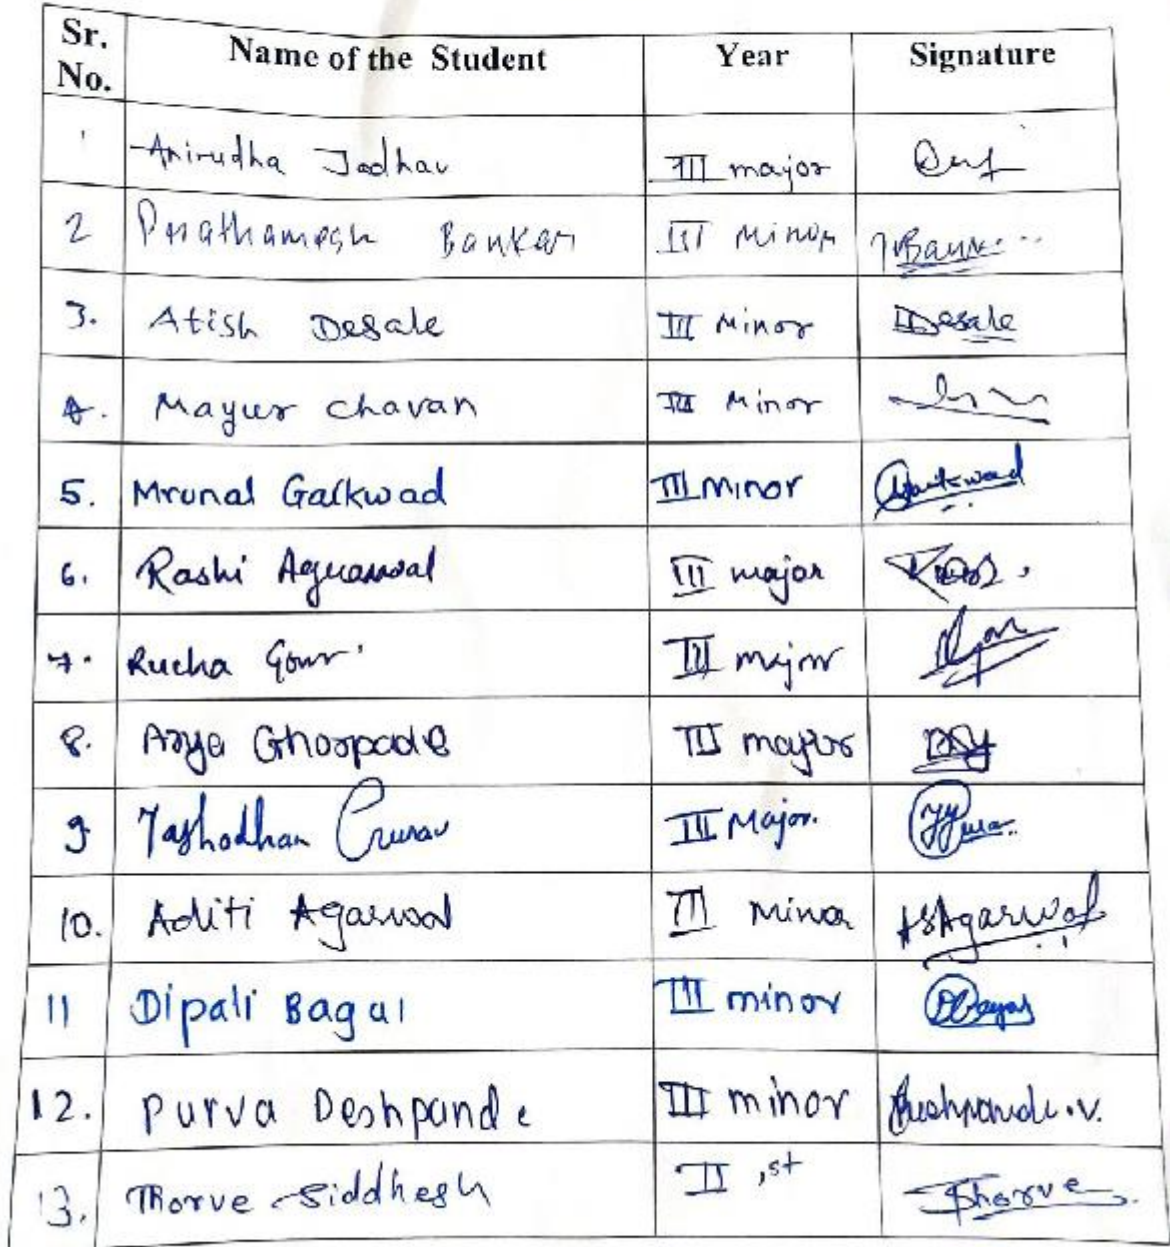 Sr. No. Name of the Student Year Signature
1 Anirudha Jadhav III major
2 Prathamesh Bankar III Minor
3. Atish Desale III Minor Desale
4. Mayur Chavan III Minor
5. Mrunal Gaikwad III Minor Gaikwad
6. Rashi Agrawal III major
7. Rucha Gour III major
8. Arya Ghorpade III major
9 Yashodhan Gurav III Major.
10. Aditi Agarwal III Minor ASAgarwal
11 Dipali Bagal III minor
12. Purva Deshpande III minor Deshpande.V.
13. Thorve Siddhesh II ,st Thorve